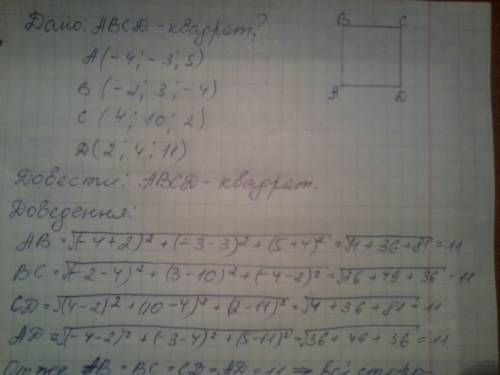 Дано: ABCD - квадрат?
A(-4; -3; 5)
B(-2; 3; -4)
C(4; 10; 2)
D(2; 4; 11)
B C
A D
Довести: ABCD - квадрат.
Доведення:
AB = √(-4+2)² + (-3-3)² + (5+4)² = √4+36+81 = 11
BC = √(-2-4)² + (3-10)² + (-4-2)² = √36+49+36 = 11
CD = √(4-2)² + (10-4)² + (2-11)² = √4+36+81 = 11
AD = √(-4-2)² + (-3-4)² + (5-11)² = √36+49+36 = 11
Отже AB = BC = CD = AD = 11 ⇒ всі сторо-